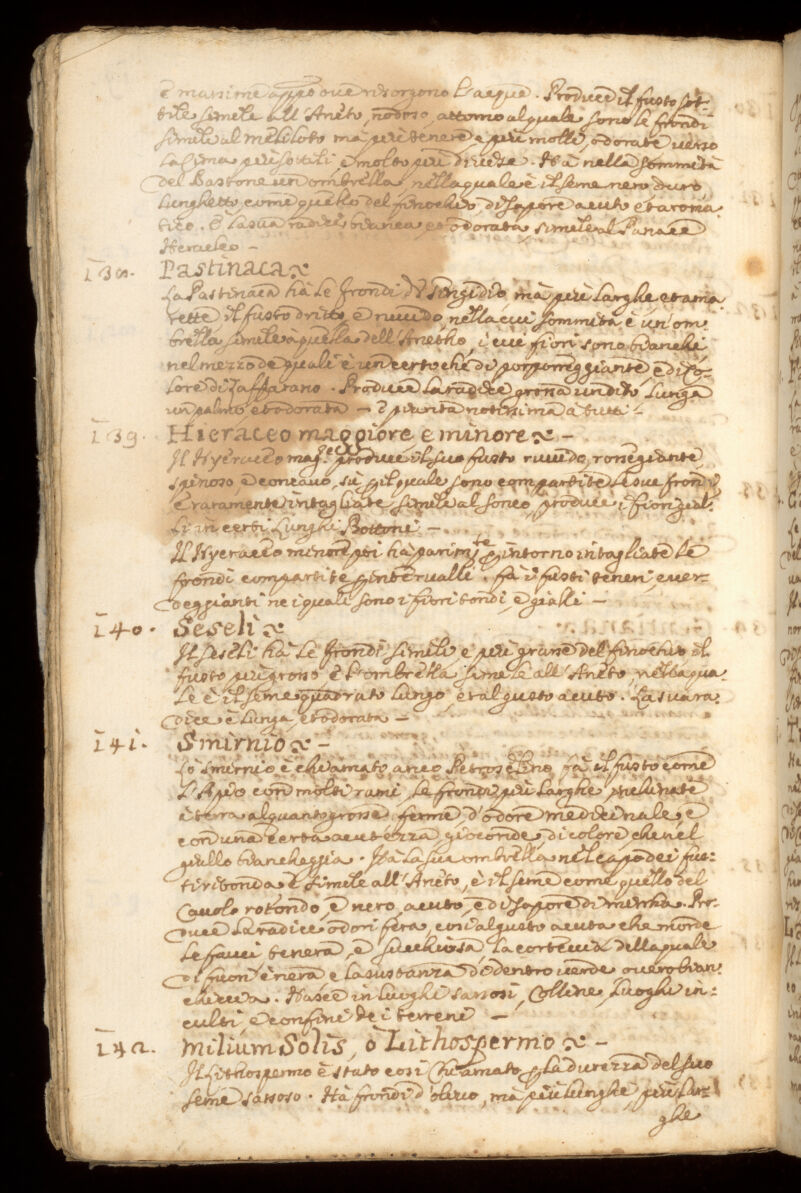 e massime appò ove risorgono l'acque. Produce il fusto sot-
tile simile all'Aneto, nodoso, attorno al quale sono le frondi
simile al meliloto ma più tenere e più molli, odorate verso
la cima più sottili, e molto più divise. Hà nella sommità
del Bastone un ombrella, nella quale è il seme nero duro
lunghetto come quello del finochio, di sapore acuto et aroma
tico. È la sua radice bianca, et odorata simile al Panace
Heracleo –
138. Pastinaca –
La Pastinaca hà le frondi di Gingidio, mà più larghe et ama
rette il fusto dritto, e ruvido, nella cui sommità è un om-
brella simile à quella dell'Anetho, i cui fiori sono bianchi
nel mezzo de quali è un certo che di porporeggiante, e di co-
lore di zaffarano. Produce la radice grossa un dito, lunga
un palmo et odorata – è pianta notissima à tutti –
139. Hieraceo maggiore, e minore –
Il Hyeraceo mag.re produce il suo fusto ruvido, rosseggiante,
spinoso, e concavo, sù p il quale sono compartite le sue frondi
e raramente intagliate simile al sonco, produce i fiori gial-
li in certi lunghi Bottoni –
Il Hyeraceo minore poi hà parim.te p intorno intagliate le
frondi compartite p intervalli. fà i fusti teneri, ever-
deggianti ne i quali sono i fiori tondi, e gialli –
140. Seseli –
Il seseli hà le frondi simili e più grasse del finochio il
fusto più grosso e l'ombrella simile all'Aneto, nella qua
le è il seme quadrato lungo, et al gusto acuto. La sua ra-
dice è lunga, et odorata –
141. Smirnio –
Lo smirnio è chiamato anco Petroselino, fà il fusto come
l'Apio con molti rami, le frondi più larghe, inclinate
à terra alquanto grosse ferme d'odore medicinale, e
con una certa acutezza gioconde, di colore che nel
giallo biancheggia. Hà la sua ombrella nel capo dei fus-
ti ritonda, e simile all'Aneto, è il seme come quello del
Cavolo rotondo, e nero, acuto, e di sapore di mirrha. Pro-
duce la radice odorifera, et al gusto acuta che morde
le fauci tenera, e succhiosa la corteccia della quale
di fuori è nera e la sustanza di dentro verde overo bian
chiccia. Nasce in luoghi sassosi, Colline, luoghi in-
culti, e confini de i terreni –
142. Milium Solis, ò Lithospermo –
Il Lithospermo è stato così chiamato p la durezza del suo
seme sassoso. Hà frondi d'olivo, mà più lunghe, più lar-
ghe